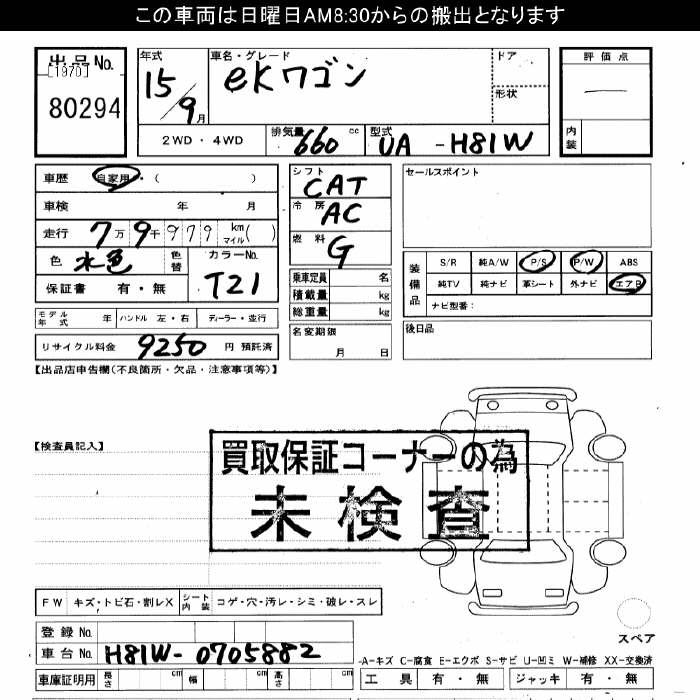 この車両は日曜日AM8:30からの搬出となります
出品No.
[1970]
80294
年式 15/9月
車名・グレード eKワゴン
ドア
形状
2WD・4WD
排気量 660 cc
型式 UA-H81W
評価点
―
内装
車歴 自家用・( )
車検 年 月
走行 7万9千979 km マイル( )
色 水色 色替 カラーNo. T21
保証書 有・無
モデル年式 年 ハンドル 左・右 ディーラー・並行
リサイクル料金 9250 円 預託済
シフト CAT
冷房 AC
燃料 G
乗車定員 名
積載量 kg
総重量 kg
名変期限 月 日
セールスポイント
装備品
S/R 純A/W P/S P/W ABS
純TV 純ナビ 革シート 外ナビ エアB
ナビ型番:
後日品
【出品店申告欄(不良箇所・欠品・注意事項等)】
【検査員記入】
買取保証コーナーの為
未検査
FW キズ・トビ石・割レX シート内装 コゲ・穴・汚レ・シミ・破レ・スレ
登録No.
車台No. H81W-0705882
車庫証明用 長さ cm 幅 cm 高さ cm
スペア
-A-キズ C-腐食 E-エクボ S-サビ U-凹ミ W-補修 XX-交換済
工具 有・無 ジャッキ 有・無